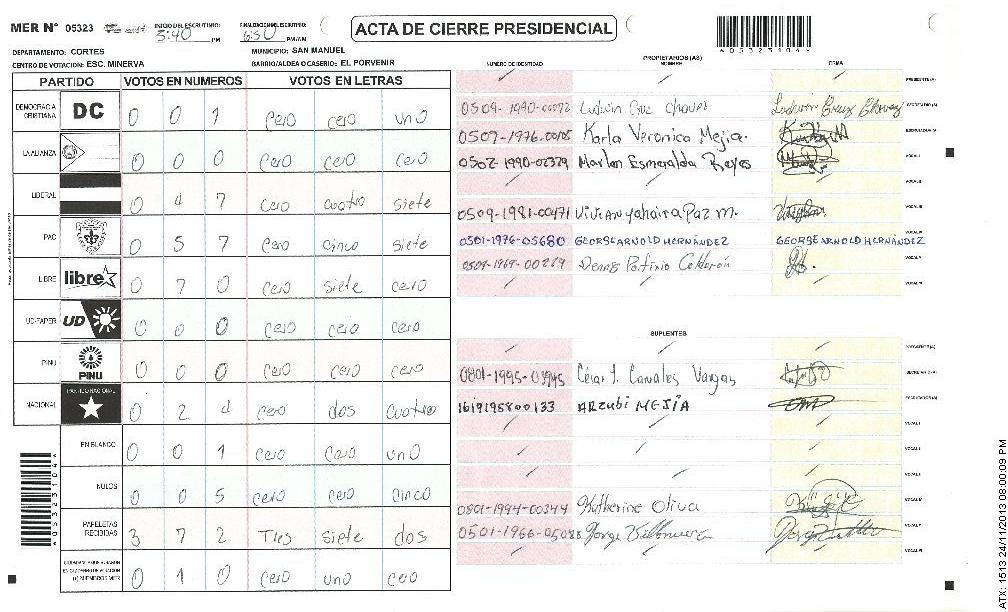 MER N° 05323 INICIO DEL ESCRUTINIO: 5:40 PM FINALIZACION DEL ESCRUTINIO: 6:50 PM/AM
ACTA DE CIERRE PRESIDENCIAL
DEPARTAMENTO: CORTES MUNICIPIO: SAN MANUEL
CENTRO DE VOTACION: ESC. MINERVA BARRIO/ALDEA O CASERIO: EL PORVENIR
PARTIDO VOTOS EN NUMEROS VOTOS EN LETRAS
DEMOCRACIA CRISTIANA DC 0 0 1 cero cero uno
LA ALIANZA 0 0 0 cero cero cero
LIBERAL 0 4 7 cero cuatro siete
PAC 0 5 7 cero cinco siete
LIBRE libre 0 7 0 cero siete cero
UD-FAPER UD 0 0 0 cero cero cero
PINU PINU 0 0 0 cero cero cero
NACIONAL PARTIDO NACIONAL 0 2 4 cero dos cuatro
EN BLANCO 0 0 1 cero cero uno
NULOS 0 0 5 cero cero cinco
PAPELETAS RECIBIDAS 3 7 2 Tres siete dos
0 1 0 cero uno cero
NUMERO DE IDENTIDAD PROPIETARIOS (AS) NOMBRE FIRMA
PRESIDENTE (A)
0509-1990-00072 Ludwin Cruz Chavez Ludwin Cruz Chavez SECRETARIO (A)
Karla Veronica Mejia. ESCRUTADOR (A)
0502-1990-02379 Marlen Esmeralda Reyes VOCAL I
VOCAL II
0509-1981-00471 Vivian yahaira Paz M. VOCAL III
0501-1976-05680 GEORGE ARNOLD HERNÁNDEZ GEORGE ARNOLD HERNÁNDEZ VOCAL IV
Denis Porfirio Calderón VOCAL V
VOCAL VI
SUPLENTES
PRESIDENTE (A)
0801-1995-03945 César J. Canales Vargas SECRETARIO (A)
1619195800133 ARZUBI MEJÍA ESCRUTADOR (A)
VOCAL I
VOCAL II
VOCAL III
0801-1994-00344 Katherine Oliva VOCAL IV
Jorge Villanueva VOCAL V
VOCAL VI
4053231049
4053231049
ATX: 1513 24/11/2013 08:00:09 PM